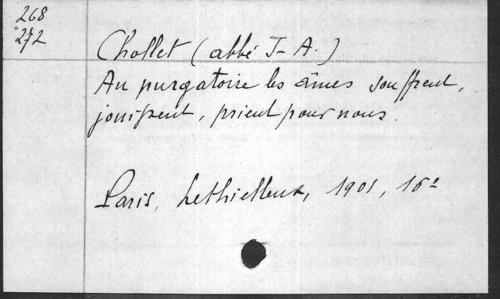 268
272
Chollet (abbé J-A.)
Au purgatoire les âmes souffrent,
jouissent, prient pour nous.
Paris, Lethielleux, 1901, 16º